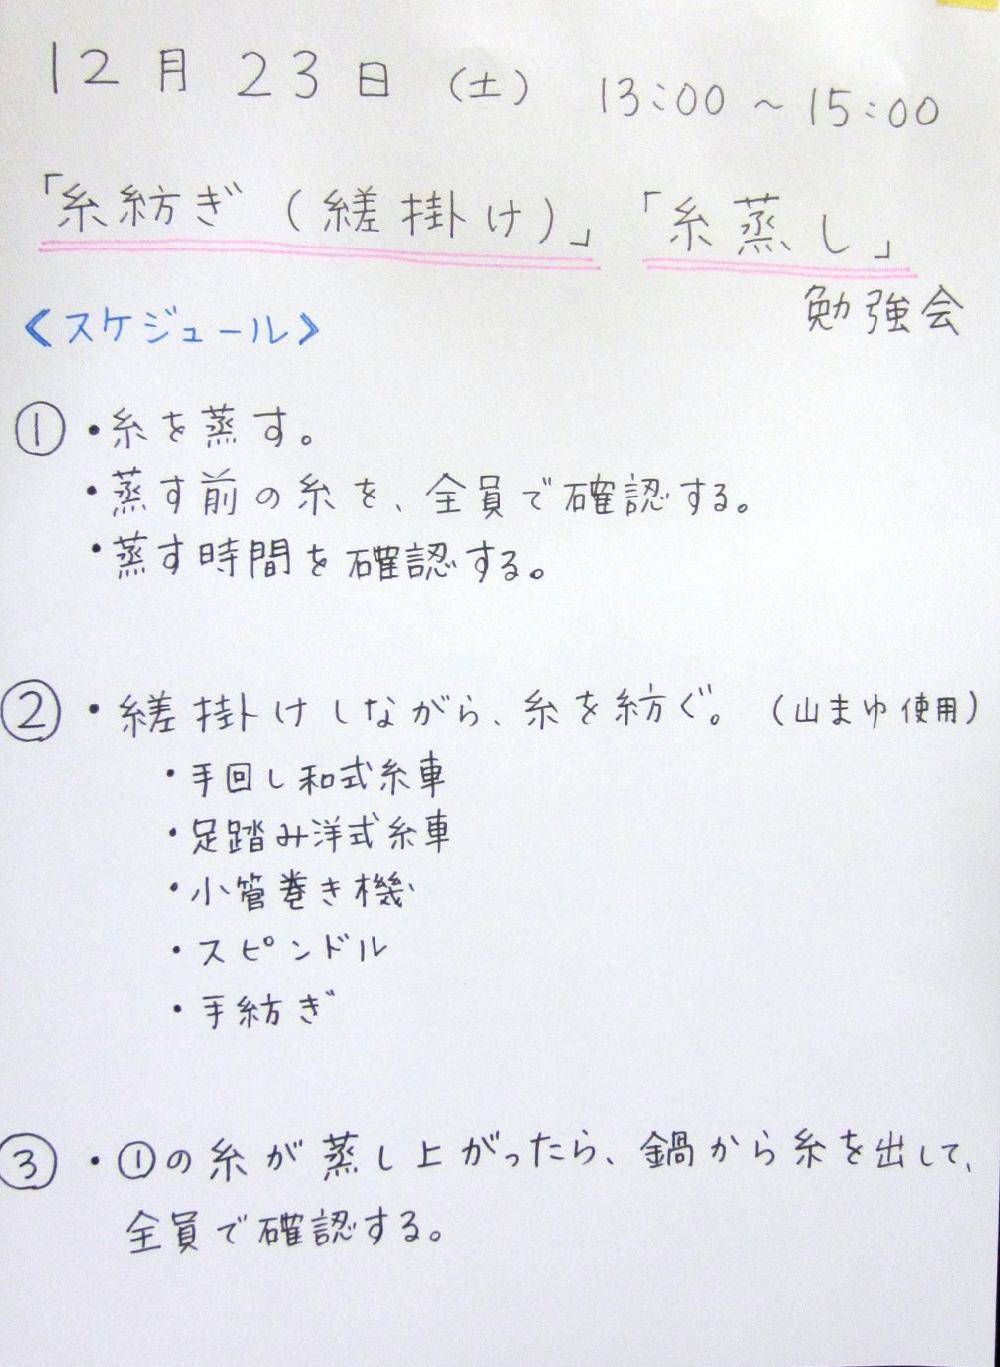 12月23日（土） 13:00～15:00
「糸紡ぎ（縒掛け）」「糸蒸し」
勉強会
《スケジュール》
① ・糸を蒸す。
・蒸す前の糸を、全員で確認する。
・蒸す時間を確認する。
② ・縒掛けしながら、糸を紡ぐ。（山まゆ使用）
・手回し和式糸車
・足踏み洋式糸車
・小管巻き機
・スピンドル
・手紡ぎ
③ ・①の糸が蒸し上がったら、鍋から糸を出して、
全員で確認する。